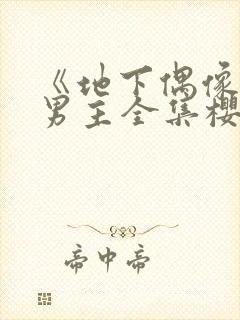 《地下偶像
男主全集樱
帝中帝